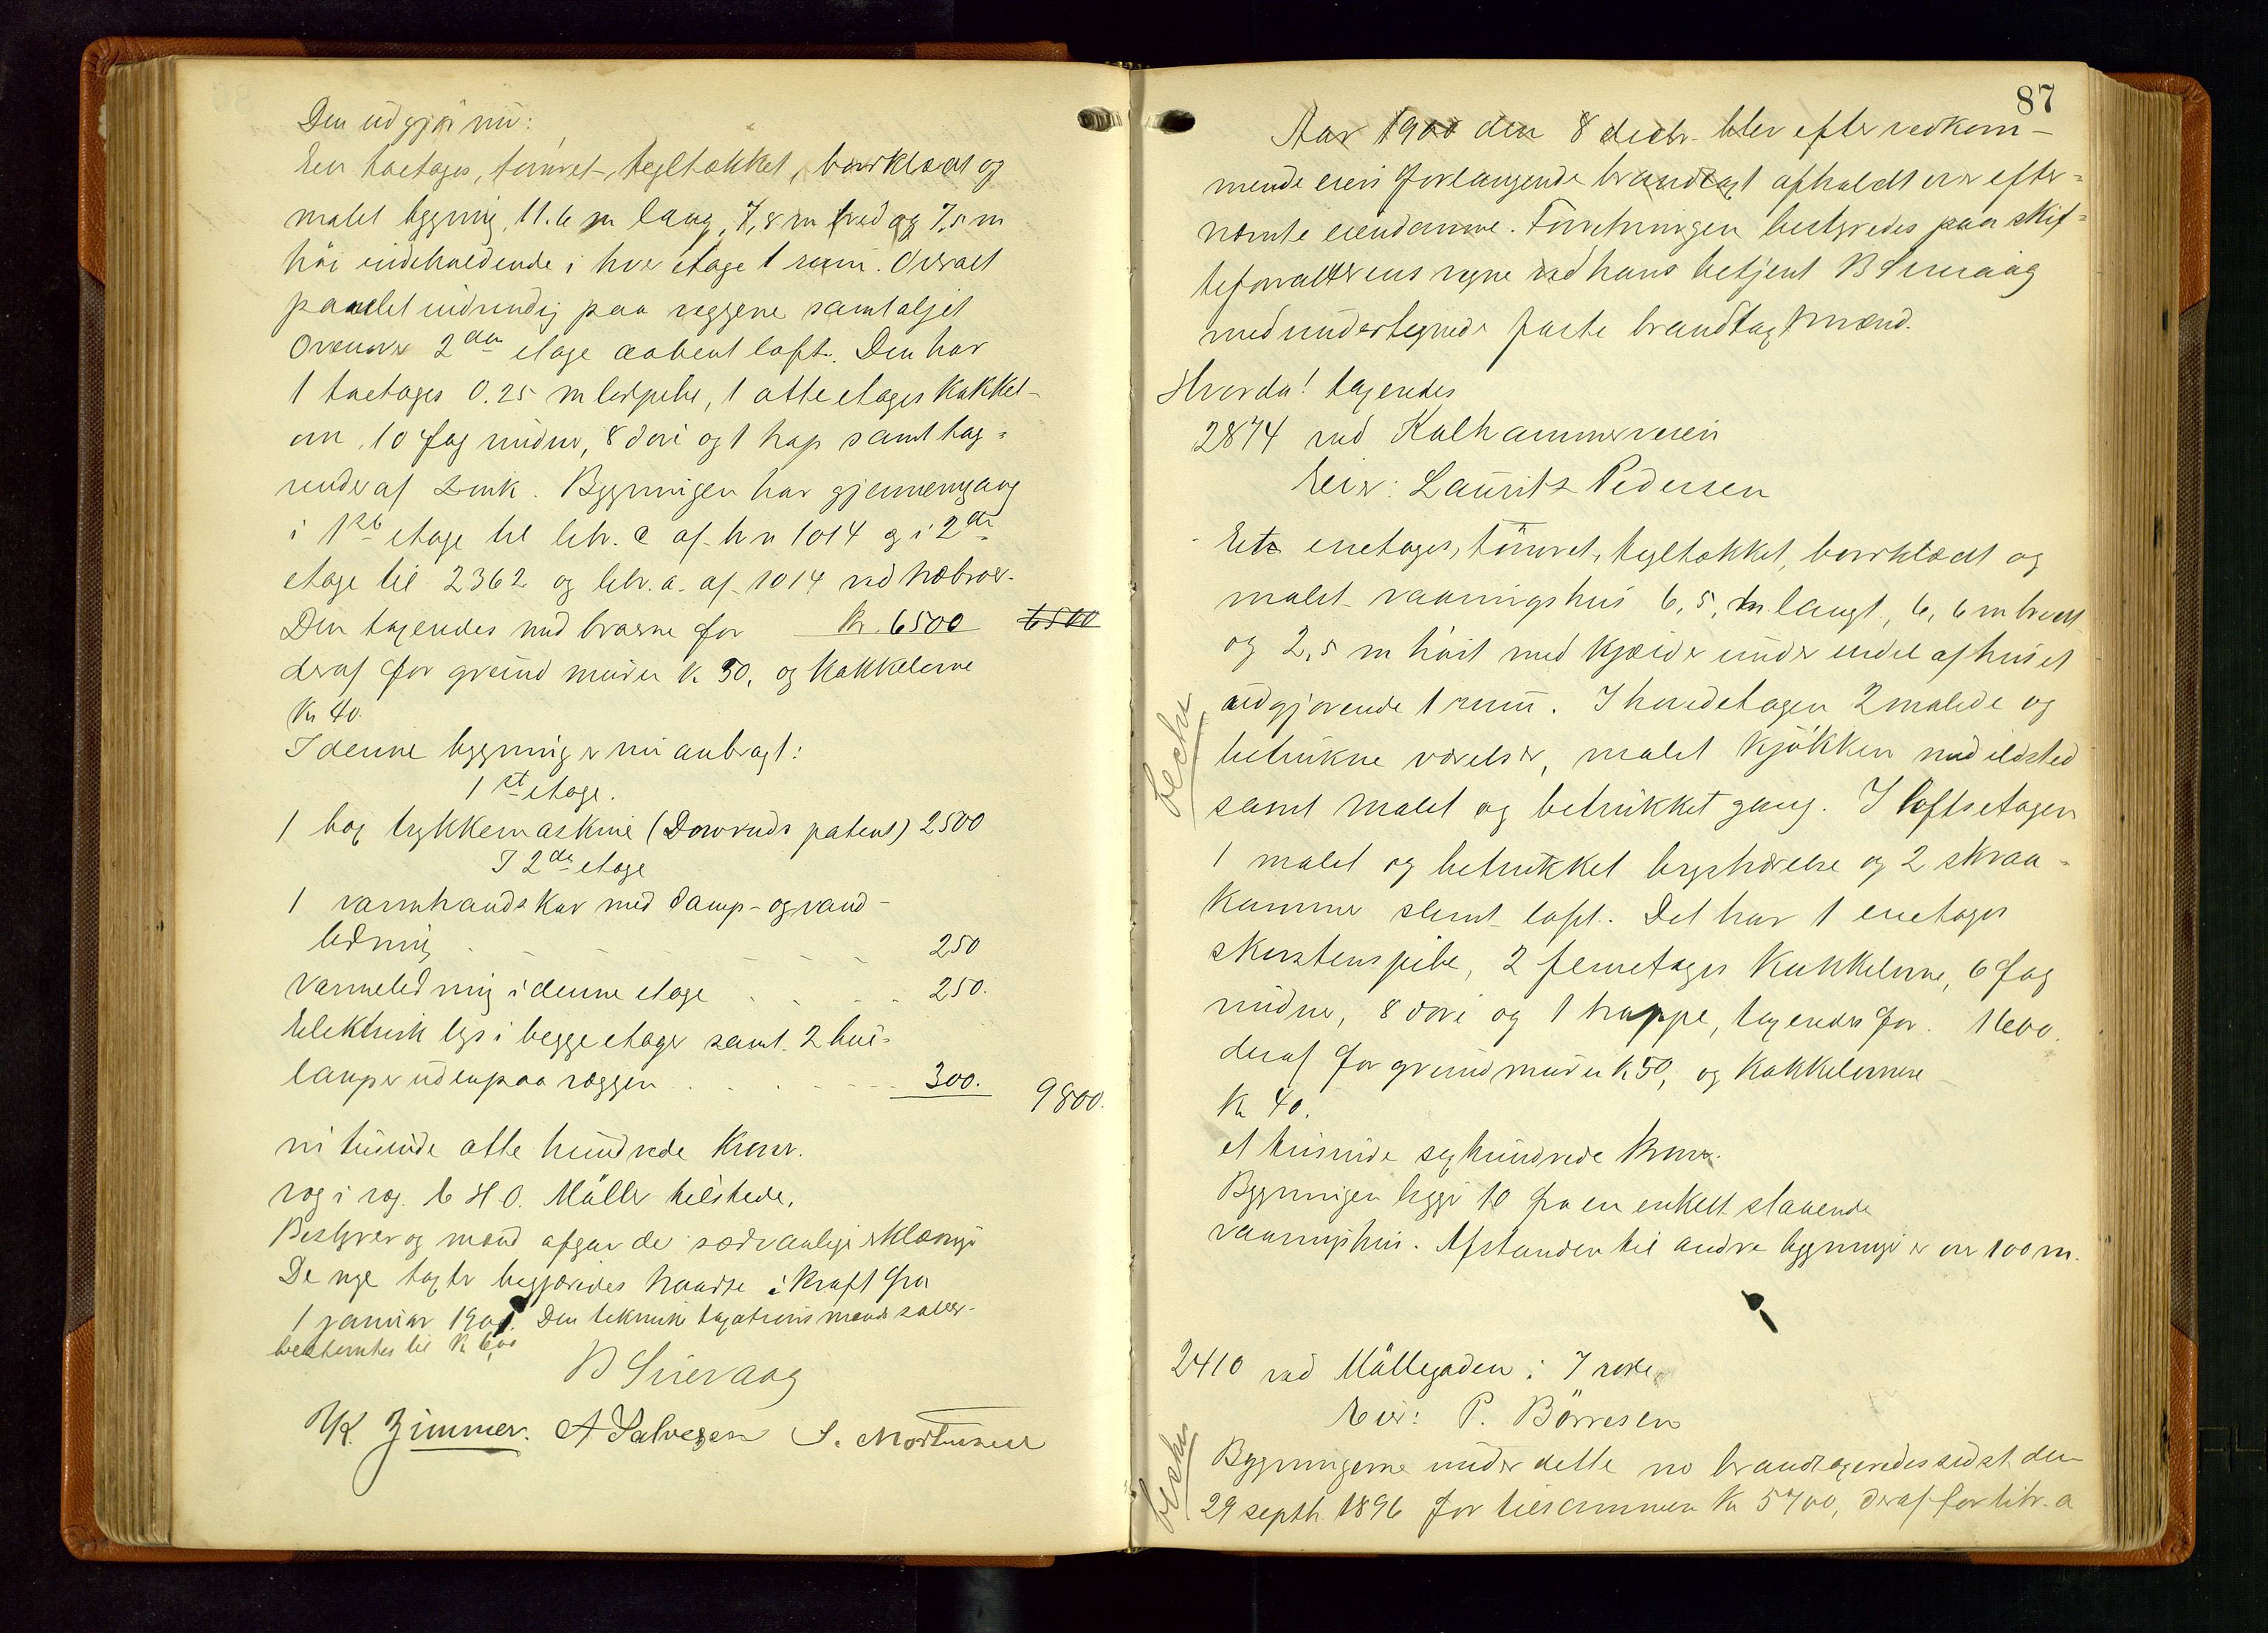 Den udgjör nu:
En toetages, tömret, tegltækket, bordklædt og
malet bygning, 11.6 m lang, 7,8 m bred og 7,5 m
höi indeholdende i hver etage 1 rum. Overalt
panelet indvendig paa væggene samt oljet
Ovenover 2den etage aabent loft. Den har
1 toetages 0.25 m lerpibe, 1 otteetages kakkel-
ovn, 10 fag vinduer, 8 döre og 1 trap samt tag-
render af zink. Bygningen har gjennemgang
i 1ste etage til litr. c af h no 1014 og i 2den
etage til 2362 og litr. a. af 1014 ved
Den taxeredes med bræne for kr. 6500 6500
deraf for grundmuren kr 50, og kakkelovne
Kr 40.
I denne bygning er nu anbragt:
1ste etage.
1 bog trykkemaskine ( patent) 2500
I 2den etage
1 varmtvandskar med damp- og vand-
ledning 250
Varmeledning i denne etage 250.
Elektrisk lys i begge etager samt 2 bue-
lamper udenpaa væggen 300. 9800.
ni tusinde otte hundrede kroner.
H O. Müller tilstede.
Bestyrer og mænd afgav de sædvanlige erklæringer
De nye taxter begjæredes traadte i kraft fra
1 januar 1901. Den tekniske taxationsmands salær
bestemtes til kr 6,00
B Sirevaag
Zimmer. A Salvesen S. Mortensen
87
Aar 1900 den 8 decbr. blev efter vedkom-
mende eiers forlangende brandtaxt afholdt over efter-
nævnte eiendomme. Forretningen bestyredes paa skif-
teforvalterens vegne ved hans betjent B Sirevaag
med undertegnede faste brandtaxtmænd.
Hvorda! taxeredes
2874 ved Kalhammerveien
Eier: Lauritz Pedersen
Et enetages, tömret, tegltækket, bordklædt og
malet vaaningshus 6,5, m langt, 6,6 m bredt
og 2,5 m höit med kjælder under endel af huset
udgjörende 1 rum. I hovedetagen 2 malede og
betrukne værelser, malet kjökken med ildsted
samt malet og betrukket gang. I loftsetagen
1 malet og betrukket kvistværelse og 2 skraa-
kammer samt loft. Det har 1 enetages
skorstenspibe, 2 femetages kakkelovne, 6 fag
vinduer, 8 döre og 1 trappe, taxeredes for 1600.
deraf for grundmuren kr 50, og kakkelovnene
Kr 40.
et tusinde sexhundrede kroner.
Bygningen ligger 10 fra en enkelt staaende
vaaningshus. Afstanden til andre bygninger er over 100 m.
2410 ved Möllegaden i 7 rode
Eier: P. Börresen
Bygningerne under dette no brandtaxeredes sidst den
29 septbr. 1896 for tilsammen kr 5700, deraf for litr. a